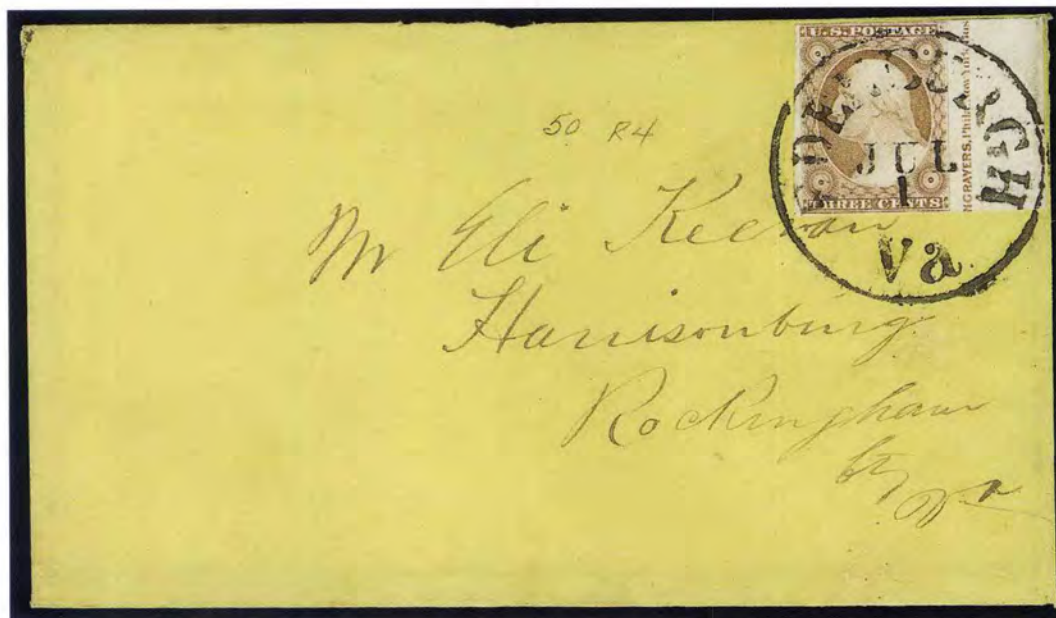 U.S. POSTAGE
THREE CENTS
NGRAVERS, Phila New York,
JUL
1
Va
50 R4
Mr Eli
Harrisonburg
Rockingham
Va